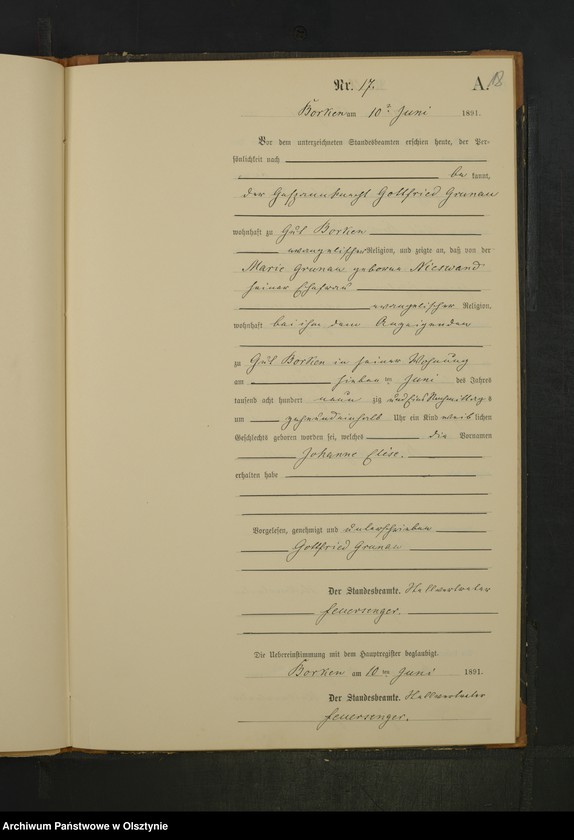 Nr. 17.
A. 18
Borken am 10ᵗ Juni 1891.
Vor dem unterzeichneten Standesbeamten erschien heute, der Per-
sönlichkeit nach
be kannt,
der Gespannknecht Gottfried Grunau
wohnhaft zu Gut Borken
evangelischer Religion, und zeigte an, daß von der
Marie Grunau geborne Nieswand
seiner Ehefrau
evangelischer Religion,
wohnhaft bei ihm dem Anzeigenden
zu Gut Borken in seiner Wohnung
am sieben ten Juni des Jahres
tausend acht hundert neun zig und Eins Nachmittags
um zehnundeinhalb Uhr ein Kind weib lichen
Geschlechts geboren worden sei, welches die Vornamen
Johanne Elise.
erhalten habe
Vorgelesen, genehmigt und unterschrieben
Gottfried Grunau
Der Standesbeamte. Stellvertreter
Feuersenger.
Die Uebereinstimmung mit dem Hauptregister beglaubigt.
Borken am 10ten Juni 1891.
Der Standesbeamte. Stellvertreter
Feuersenger.
Archiwum Państwowe w Olsztynie